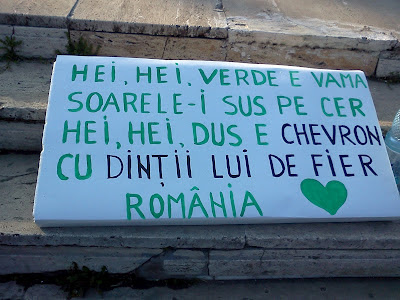 HEI, HEI, VERDE E VAMA
SOARELE-I SUS PE CER
HEI, HEI, DUS E CHEVRON
CU DINȚII LUI DE FIER
ROMÂNIA